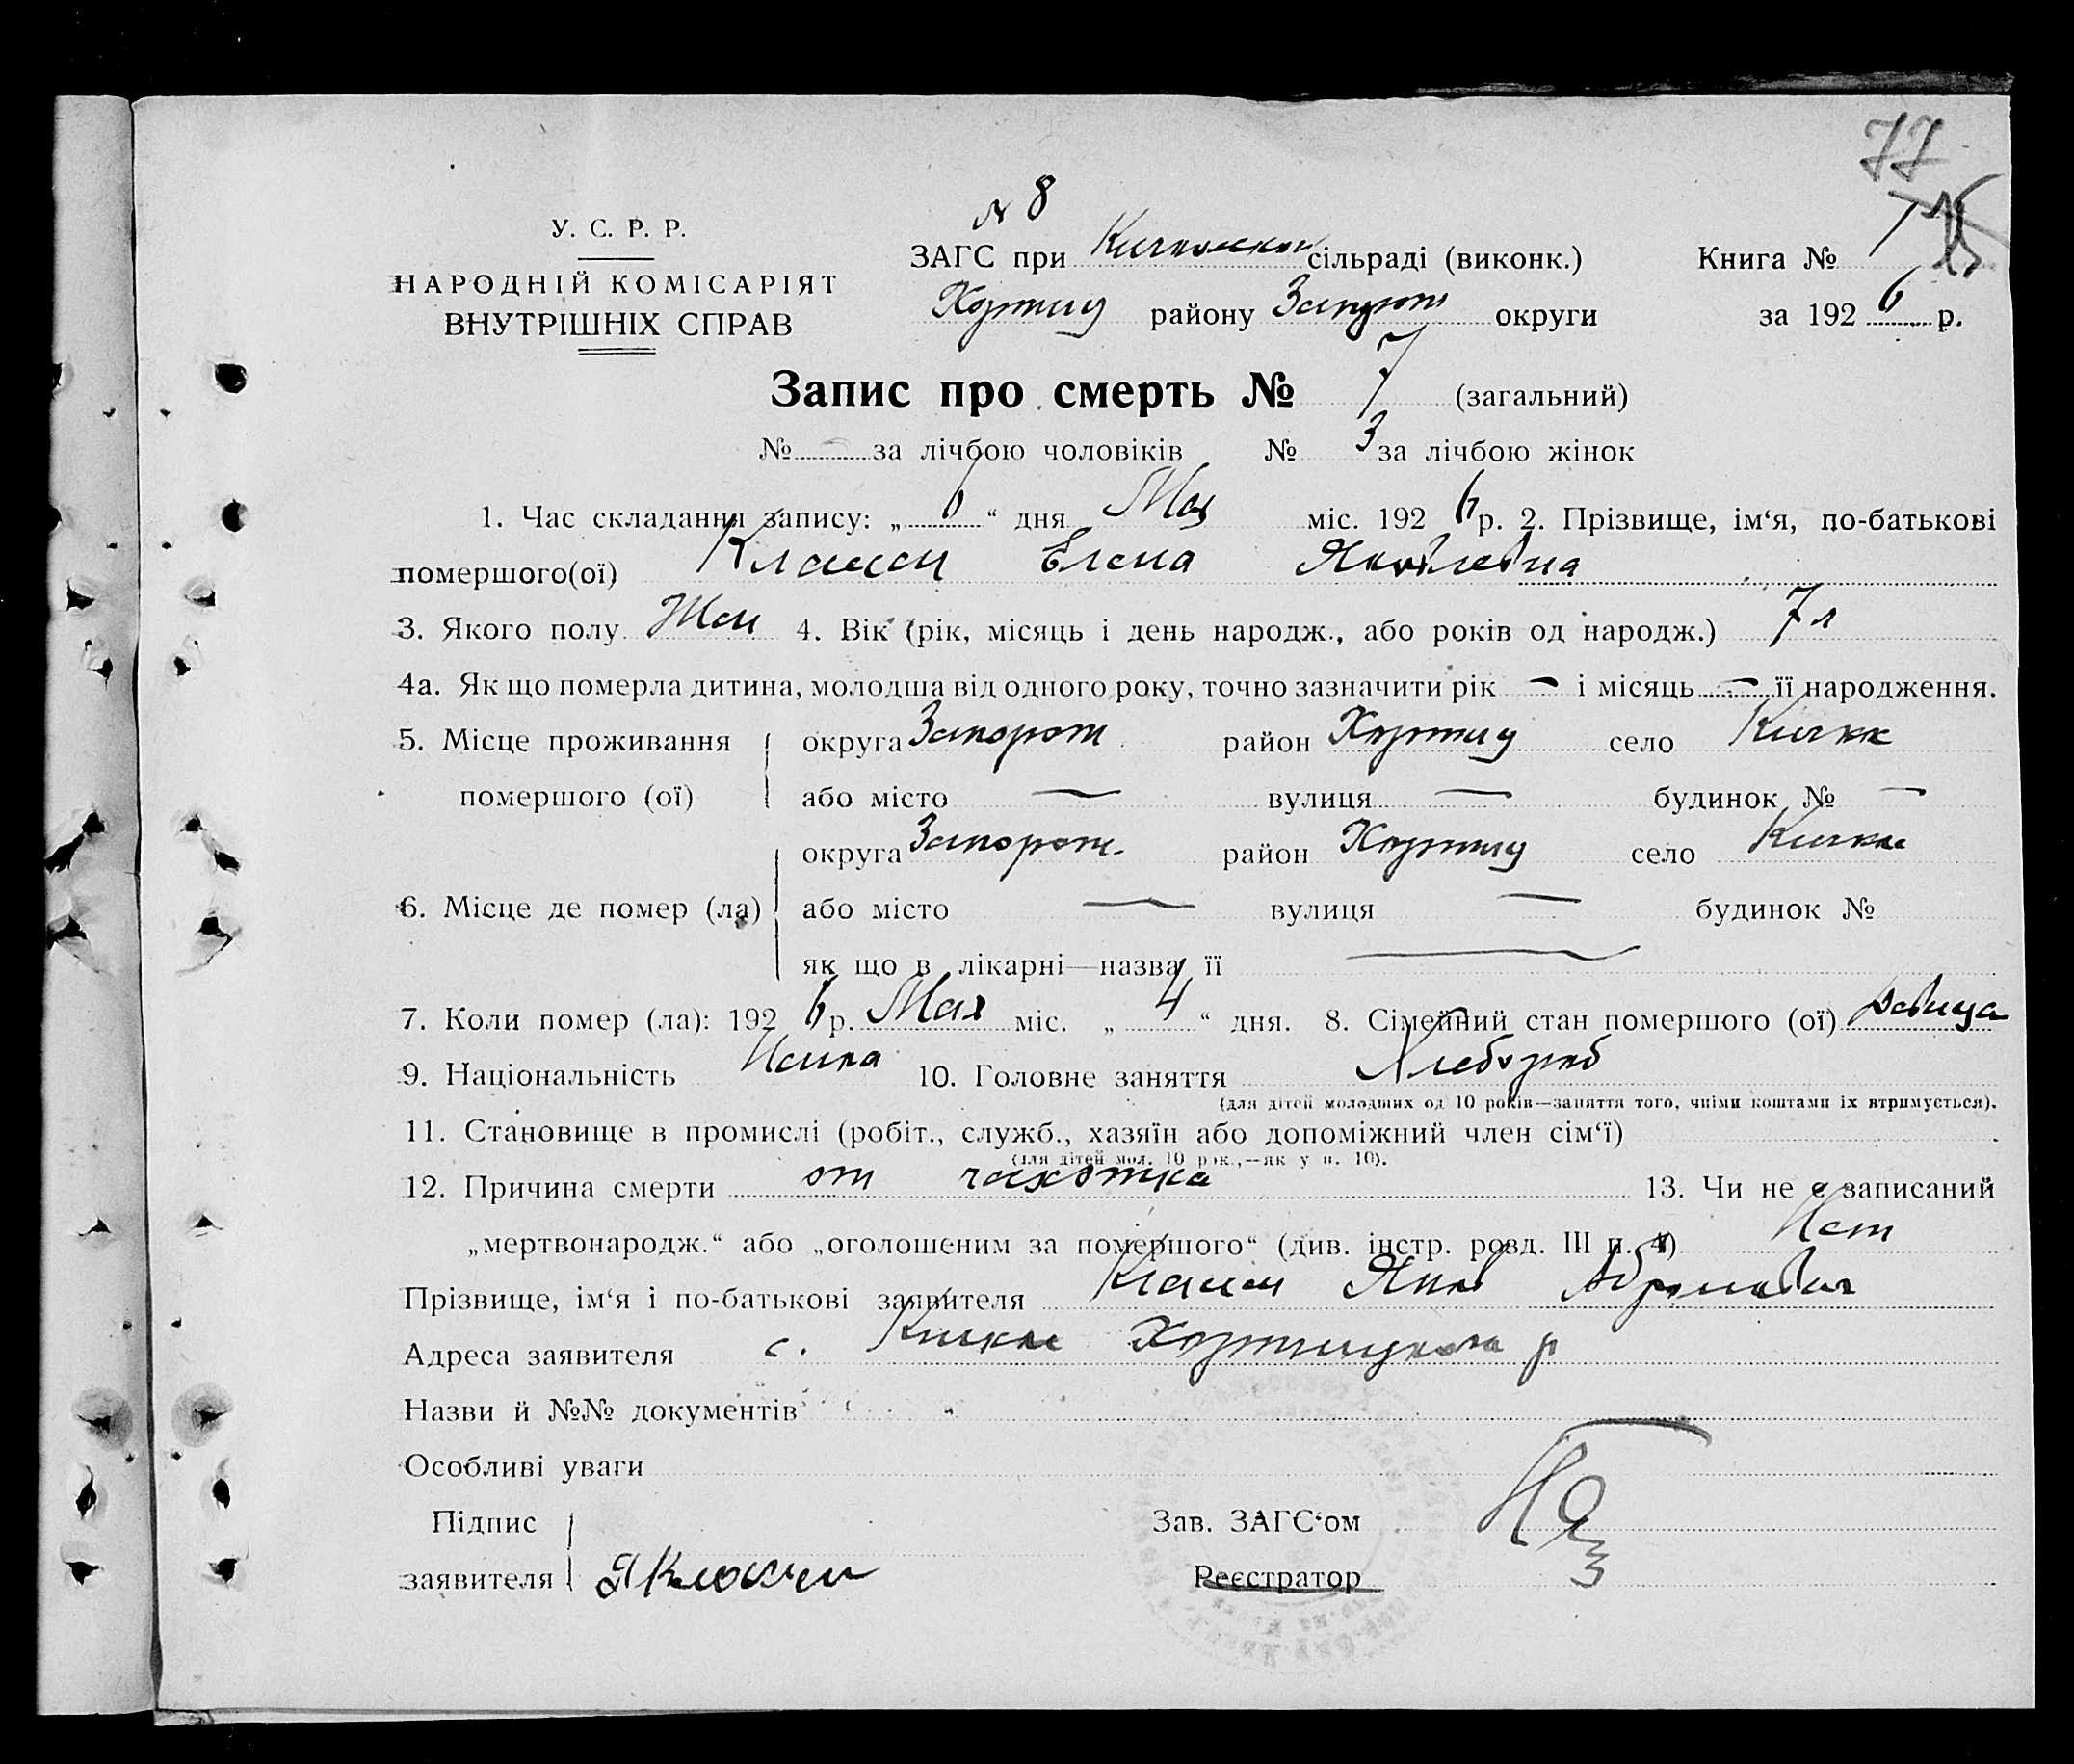 77
N 8
У. С. Р. Р.
ЗАГС при Кичкасской сільраді (виконк.) Книга № 1
НАРОДНІЙ КОМІСАРІЯТ
ВНУТРІШНІХ СПРАВ
Хортиц району Запорож округи за 1926 р.
Запис про смерть № 7 (загальний)
№ — за лічбою чоловіків № 3 за лічбою жінок
1. Час складання запису: „6“ дня Мая міс. 1926 р. 2. Прізвище, ім‘я, по-батькові
помершого(ої) Классен Елена Яковлевна
3. Якого полу Жен 4. Вік (рік, місяць і день народж., або років од народж.) 7 л
4а. Як що померла дитина, молодша від одного року, точно зазначити рік — і місяць — її народження.
5. Місце проживання округа Запорож район Хортиц село Кичкас
помершого (ої) або місто — вулиця — будинок № —
округа Запорож. район Хортиц село Кичкас
6. Місце де помер (ла) або місто — вулиця — будинок №
як що в лікарні—назва її —
7. Коли помер (ла): 1926 р. Мая міс. „4“ дня. 8. Сімейний стан помершого (ої) девица
9. Національність Немка 10. Головне заняття Хлебороб
(для дітей молодших од 10 років—заняття того, чиїми коштами їх втримується).
11. Становище в промислі (робіт., служб., хазяїн або допоміжний член сім‘ї)
(для дітей мол. 10 рок.,—як у п. 10).
12. Причина смерти от чахотка 13. Чи не є записаний
„мертвонародж.“ або „оголошеним за помершого“ (див. інстр. розд. III п. 4) Нет
Прізвище, ім‘я і по-батькові заявителя Классен Яков Абрамович
Адреса заявителя с. Кичкас Хортицкого р
Назви й №№ документів
Особливі уваги
Підпис Зав. ЗАГС‘ом
заявителя Я Классен Реєстратор